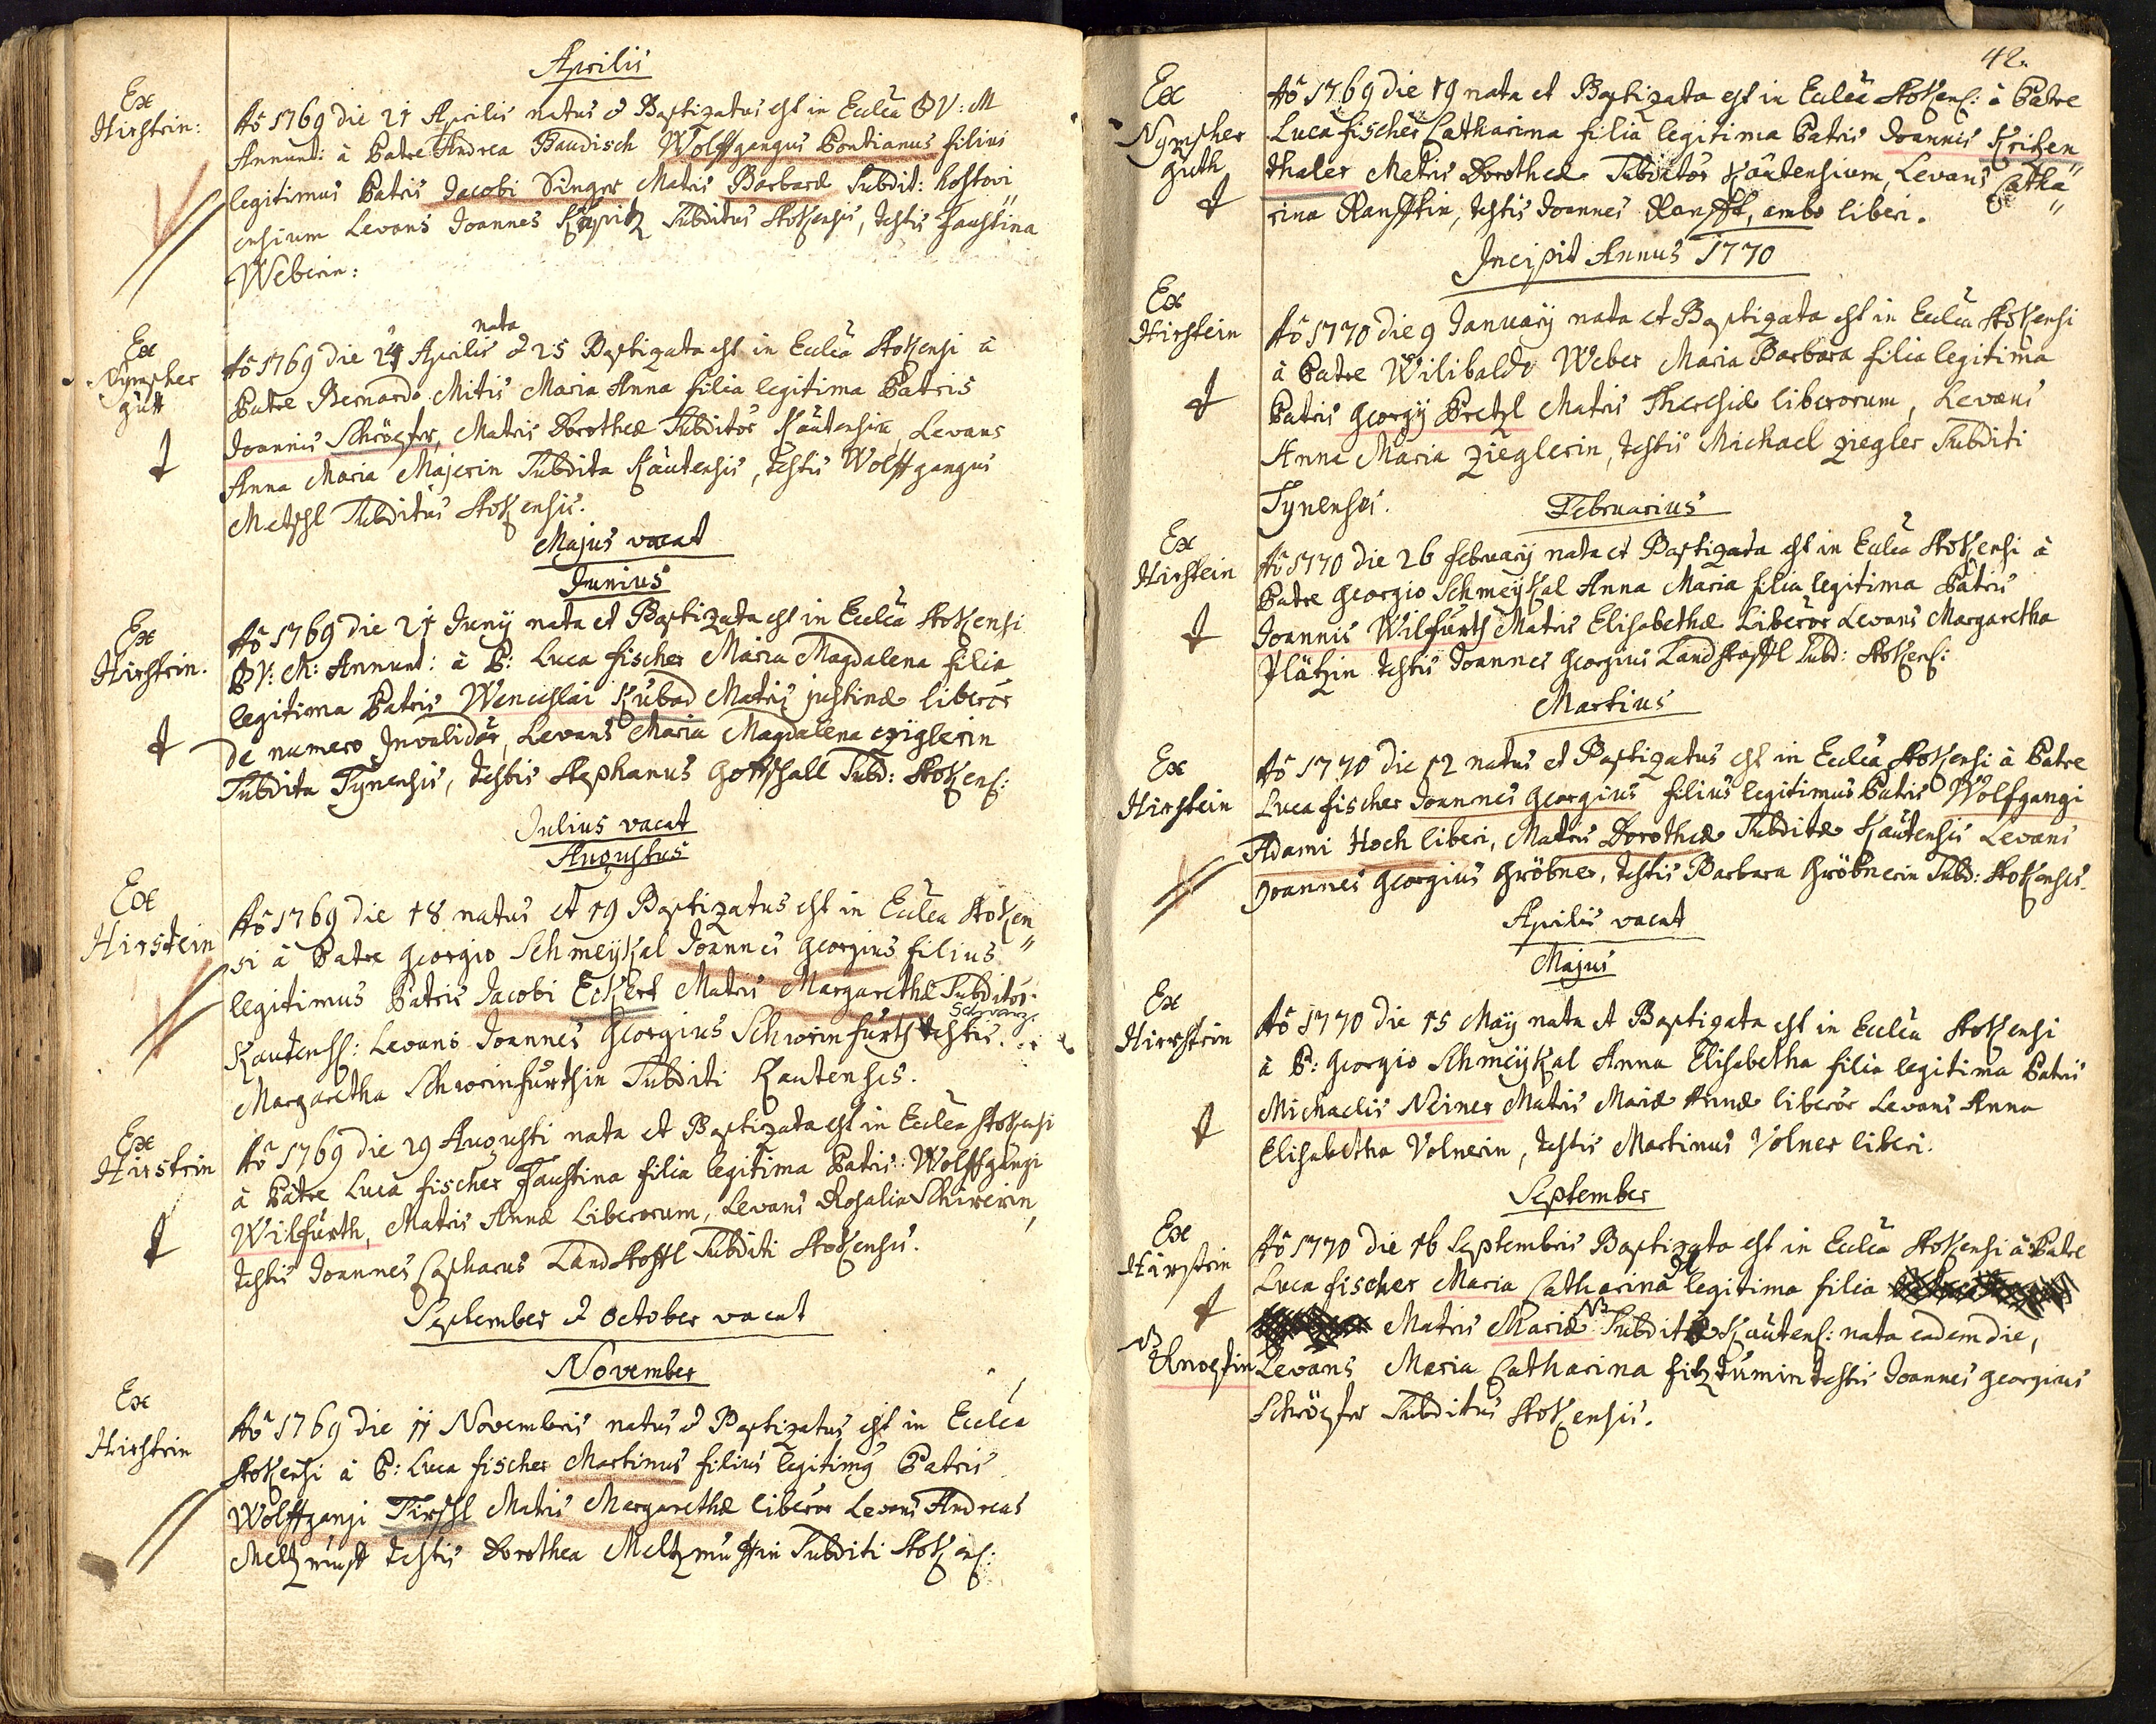 Aprilis
Ex
Hirstein:
Aõ 1769 die 21 Aprilis natus & Baptizatus est in Ecclia BV: M
Annunt: à Patre Andrea Baudisch Wolffgangus Pontianus filius
legitimus Patris Jacobi Singer Matris Barbaræ Subdit: Hostovi"
ensium Levans Joannes Subditus Stokensis, testis Faustina
Weberin:
Ex
Nympher
gutt
nata
Aõ 1769 die 24 Aprilis & 25 Baptizata est in Ecclia Stokensi à
Patre Bernardo Mitis Maria Anna filia legitima Patris
Joannis Schröpfer, Matris Dorotheæ Subditor Kautensiu, Levans
Anna Maria Majerin Subdita Kautensis, testis Wolffgangus
Metschl Subditus Stokensis.
Majus vacat
Junius
Ex
Hirstein.
Aõ 1769 die 21 Junij nata et Baptizata est in Ecclia Stokensi
BV: M: Annunt: à P: Luca fischer Maria Magdalena filia
legitima Patris Wenceslai Kubad Matris justinæ liberor
de numero Invalidor, Levans Maria Magdalena cziglerin
Subdita Tynensis, testis Stephanus Gottschall Subd: Stokens:
Julius vacat
Augustus
Ex
Hirstein
Aõ 1769 die 18 natus et 19 Baptizatus est in Ecclia Stoken"
si à Patre Georgio Schmeykal Joannes Georgius filius
legitimus Patris Jacobi Eckert Matris Margarethæ Subditor
Kautens: Levans Joannes Georgius Schweinfurth testis
Margaretha Schweinfurthin Subditi Kautenses.
Ex
Hirstein
Aõ 1769 die 29 Augusti nata et Baptizata est in Ecclia Stokensi
à Patre Luca fischer Faustina filia legitima Patris Wolffgangi
Wilfurth, Matris Annæ Liberorum, Levans Rosalia Schirerin,
testis Joannes Casparus Landstoffl Subditi Stokensis.
September & October vacat
November
Ex
Hirstein
Aõ 1769 die 11 Novembris natus & Baptizatus est in Ecclia
Stokensi à P: Luca fischer Martinus filius legitimg Patris
Wolffgangi Tirschl Matris Margarethæ liberor Levans Andreas
testis Dorothea Subditi Stokens:
42.
Ex
Nympher
guth
Aõ 1769 die 19 nata et Baptizata est in Ecclia Stokens: à Patre
Luca fischer Catharina filia legitima Patris Joannis Krizen
thaler Matris Dorotheæ Subditor Kautensium, Levans Catha"
rina Ranfftin, testis Joannes Ranfft, ambo liberi.
Incipit Annus 1770
Ex
Hirstein
Aõ 1770 die 9 January nata et Baptizata est in Ecclia Stokensi
à Patre Wilibaldo Weber Maria Barbara filia legitima
Patris Georgij Pretzl Matris Theresiæ liberorum, Levans
Anna Maria Zieglerin, testis Michael Ziegler Subditi
Tynenses.
Februarius
Ex
Hirstein
Aõ 1770 die 26 february nata et Baptizata est in Ecclia Stokensi à
Patre Georgio Schmeykal Anna Maria filia legitima Patris
Joannis Wilfurth Matris Elisabethæ Liberor Levans Margaretha
Plätzin testis Joannes Georgius Landstoffl Subd: Stokens:
Martius
Ex
Hirstein
Aõ 1770 die 12 natus et Baptizatus est in Ecclia Stokensi à Patre
Luca fischer Joannes Georgius filius legitimus Patris Wolfgangi
Adami Hoch liberi, Matris Dorotheæ Subditæ Kautensis Levans
Joannes Georgius Gröbner, testis Barbara Gröbnerin Subd: Stokenses.
Aprilis vacat
Majus
Ex
Hirstein
Aõ 1770 die 15 Maij nata et Baptizata est in Ecclia Stokensi
à P: Georgio Schmeykal Anna Elisabetha filia legitima Patris
Michaelis Neiner Matris Mariæ Annæ liberor Levans Anna
Elisabetha Volnerin, testis Martinus Volner liberi.
September
Ex
Hirstein
Aõ 1770 die 16 Septembris Baptizata est in Ecclia Stokensi à Patre
Luca fischer Maria Catharina legitima filia
Matris Mariæ NB Subditæ Kautens: nata eadem die,
NB
Knopfin
Levans Maria Catharina fitzdumin testis Joannes Georgius
Schröpfer Subditus Stokensis.